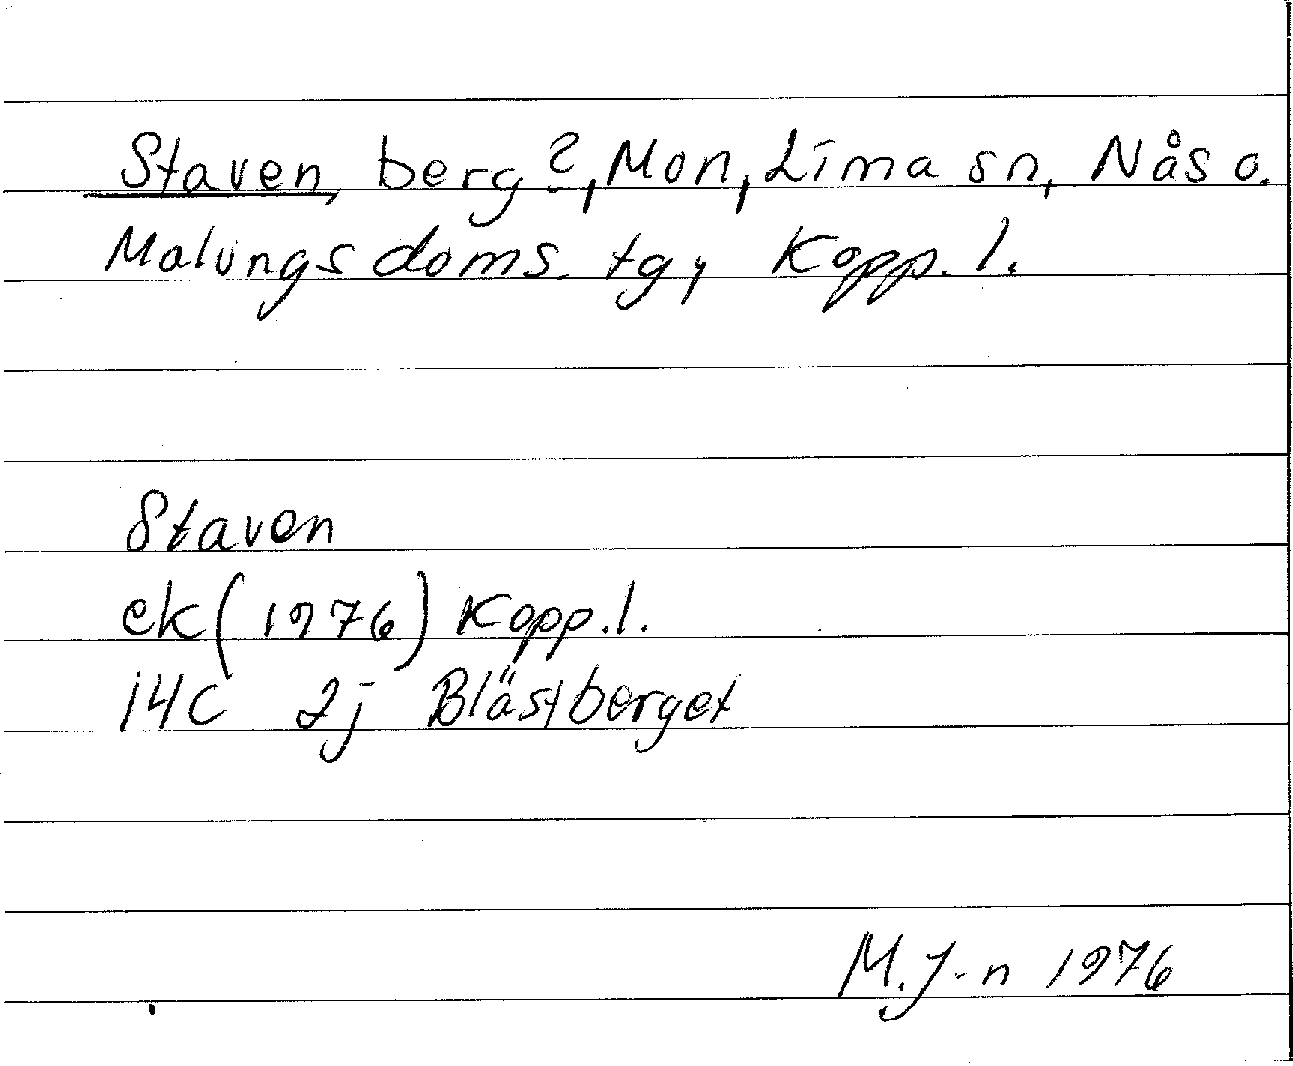 Staven, berg?, Mon, Lima sn, Nås o.
Malungs doms. tg, Kopp. l.
Staven
ek (1976) Kopp. l.
14C 2j Blästberget
M. J-n 1976